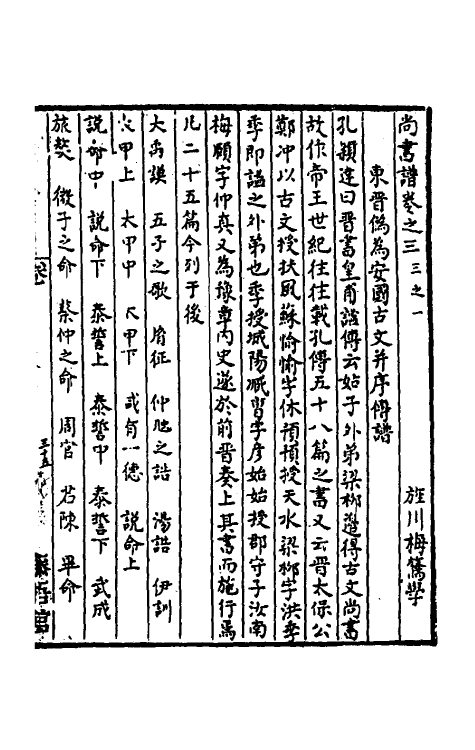 尚書譜卷之三 三之一
旌川梅鷟學
東晉偽為安國古文并序傳譜
孔穎達曰晉書皇甫謐傳云姑子外弟梁柳邉得古文尚書
故作帝王世紀往往載孔傳五十八篇之書又云晉太保公
鄭冲以古文授扶風蘇愉愉字休預預授天水梁柳字洪季
季即謐之外弟也季授城陽臧曹字彦始始授郡守子汝南
梅頤字仲真又為豫章内史遂於前晉奏上其書而施行焉
凡二十五篇今列于後
大禹謨 五子之歌 胤征 仲虺之誥 湯誥 伊訓
太甲上 太甲中 太甲下 咸有一德 說命上
說命中 說命下 泰誓上 泰誓中 泰誓下 武成
旅獒 微子之命 蔡仲之命 周官 君陳 畢命